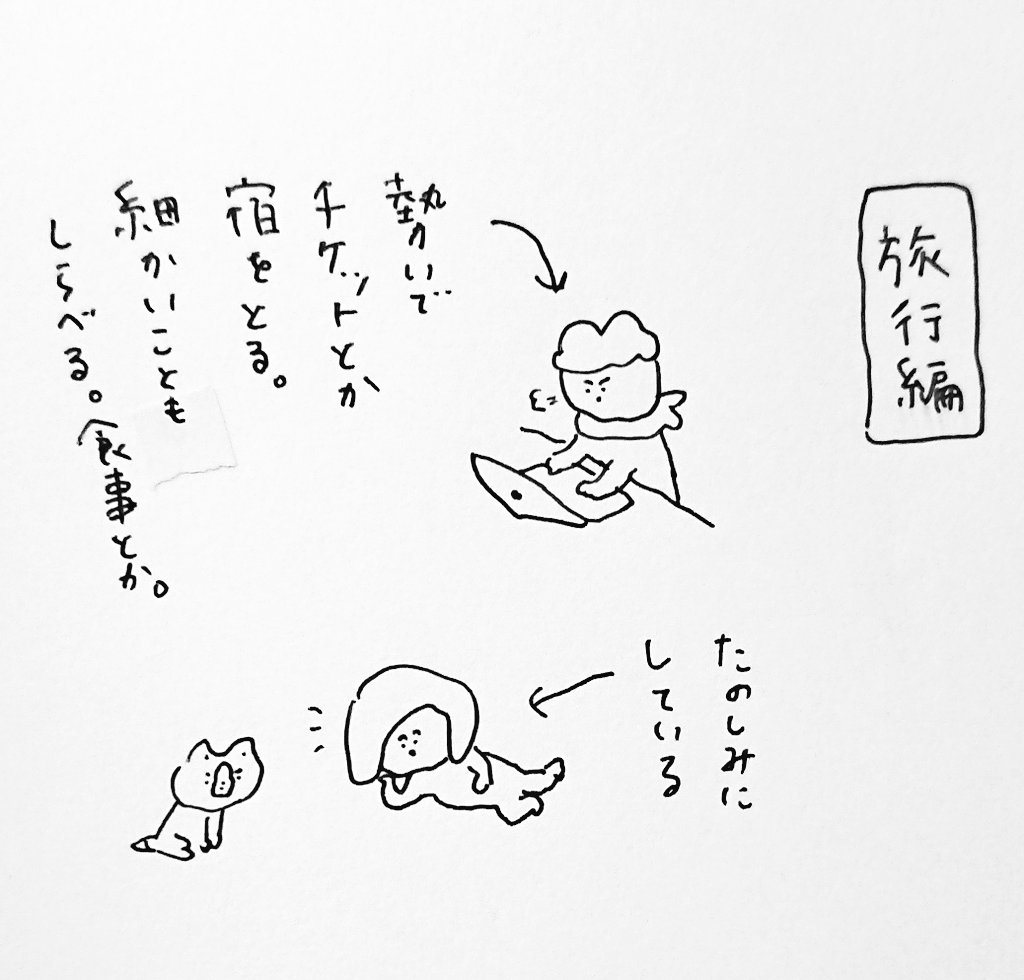 旅行編
勢いで
チケットとか
宿をとる。
細かいことも
しらべる。食事とか。
たのしみに
している